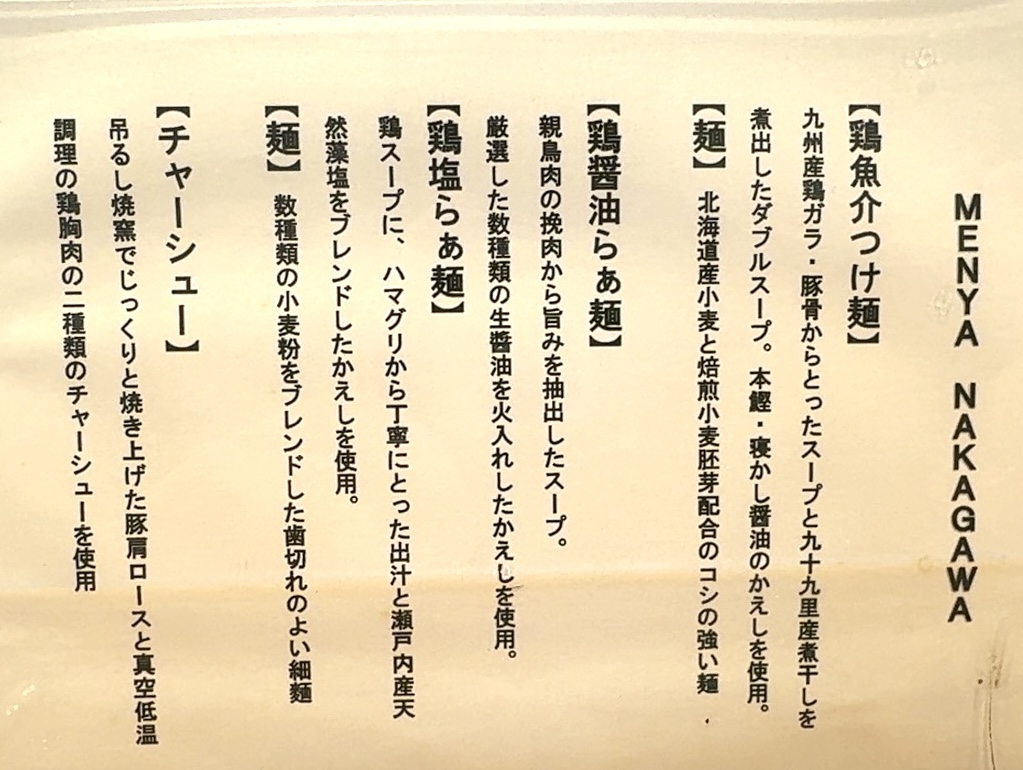 MENYA NAKAGAWA
【鶏魚介つけ麺】
九州産鶏ガラ・豚骨からとったスープと九十九里産煮干しを
煮出したダブルスープ。本鰹・寝かし醤油のかえしを使用。
【麺】 北海道産小麦と焙煎小麦胚芽配合のコシの強い麺
【鶏醤油らぁ麺】
親鳥肉の挽肉から旨みを抽出したスープ。
厳選した数種類の生醬油を火入れしたかえしを使用。
【鶏塩らぁ麺】
鶏スープに、ハマグリから丁寧にとった出汁と瀬戸内産天
然藻塩をブレンドしたかえしを使用。
【麺】 数種類の小麦粉をブレンドした歯切れのよい細麺
【チャーシュー】
吊るし焼窯でじっくりと焼き上げた豚肩ロースと真空低温
調理の鶏胸肉の二種類のチャーシューを使用